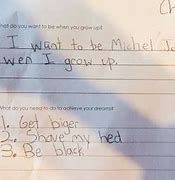 Ch
What do you want to be when you grow up?
I want to be Michel Jo
wen I grow up.
What do you need to do to achieve your dreams?
1. Get biger
2. Shave my hed
3. Be black.